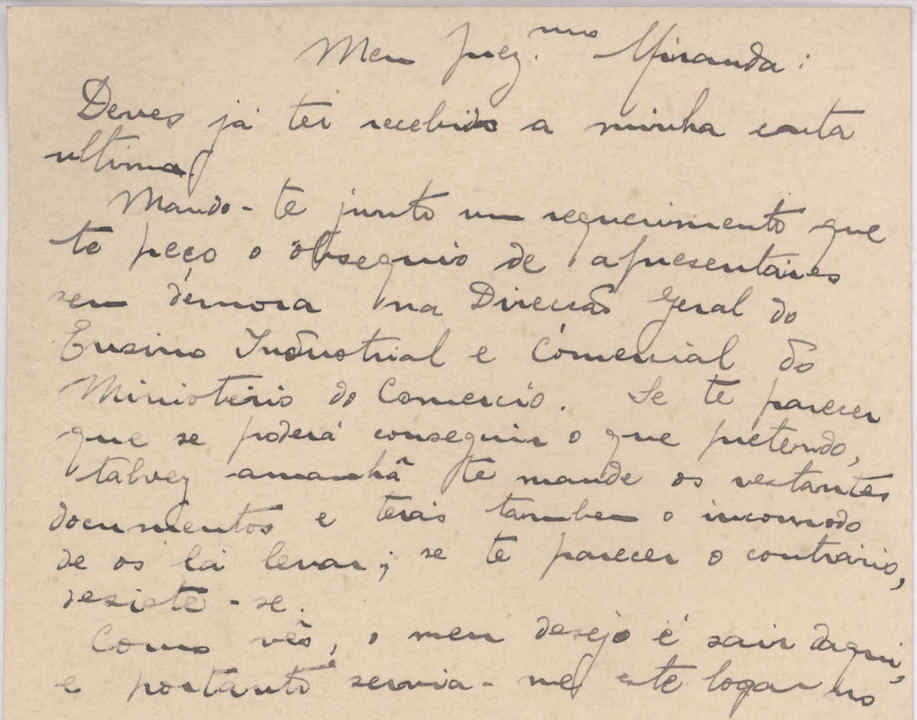 Meu prez.mo Miranda:
Deves já ter recebido a minha carta
ultima.
Mando-te junto um requerimento que
te peço o obsequio de apresentares
sem demora na Direcção Geral do
Ensino Industrial e Comercial do
Ministerio do Comercio. Se te parecer
que se poderá conseguir o que pretendo,
talvez amanhã te mande os restantes
documentos e terás tambem o incomodo
de os lá levar; se te parecer o contrário,
desiste-se.
Como vês, o meu desejo é sair daqui,
e portanto servia-me este logar no